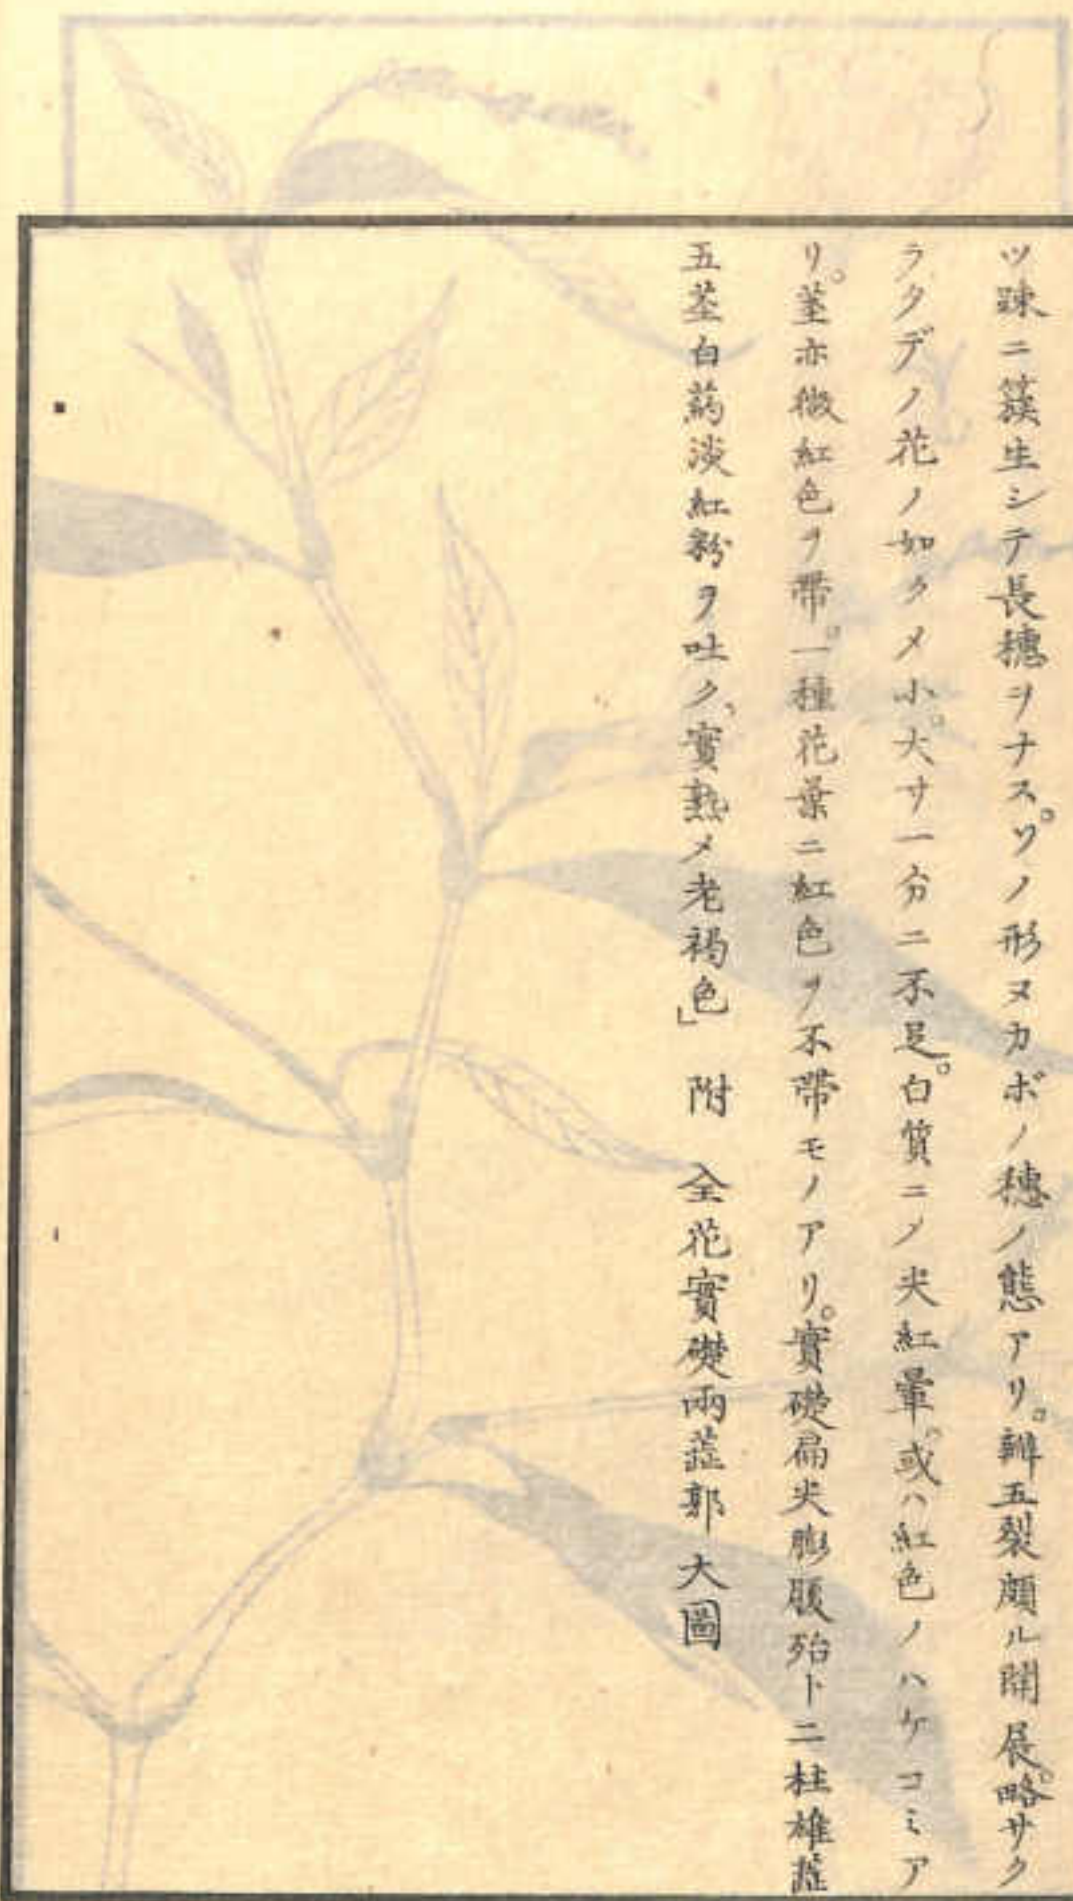 ツ疎ニ簇生シテ長穗ヲナス。ソノ形ヌカボノ穗ノ態アリ。瓣五裂頗ル開展。略サク
ラタデノ花ノ如クメ小。大サ一分ニ不足。白質ニノ尖紅暈。或ハ紅色ノハケコミア
リ。莖亦微紅色ヲ帶。一種花葉ニ紅色ヲ不帶モノアリ。實礎扁尖膨腹殆ト二柱雄蕋
五莖白葯淡紅粉ヲ吐ク、實熟メ老褐色」 附 全花實礎兩蕋郭大圖